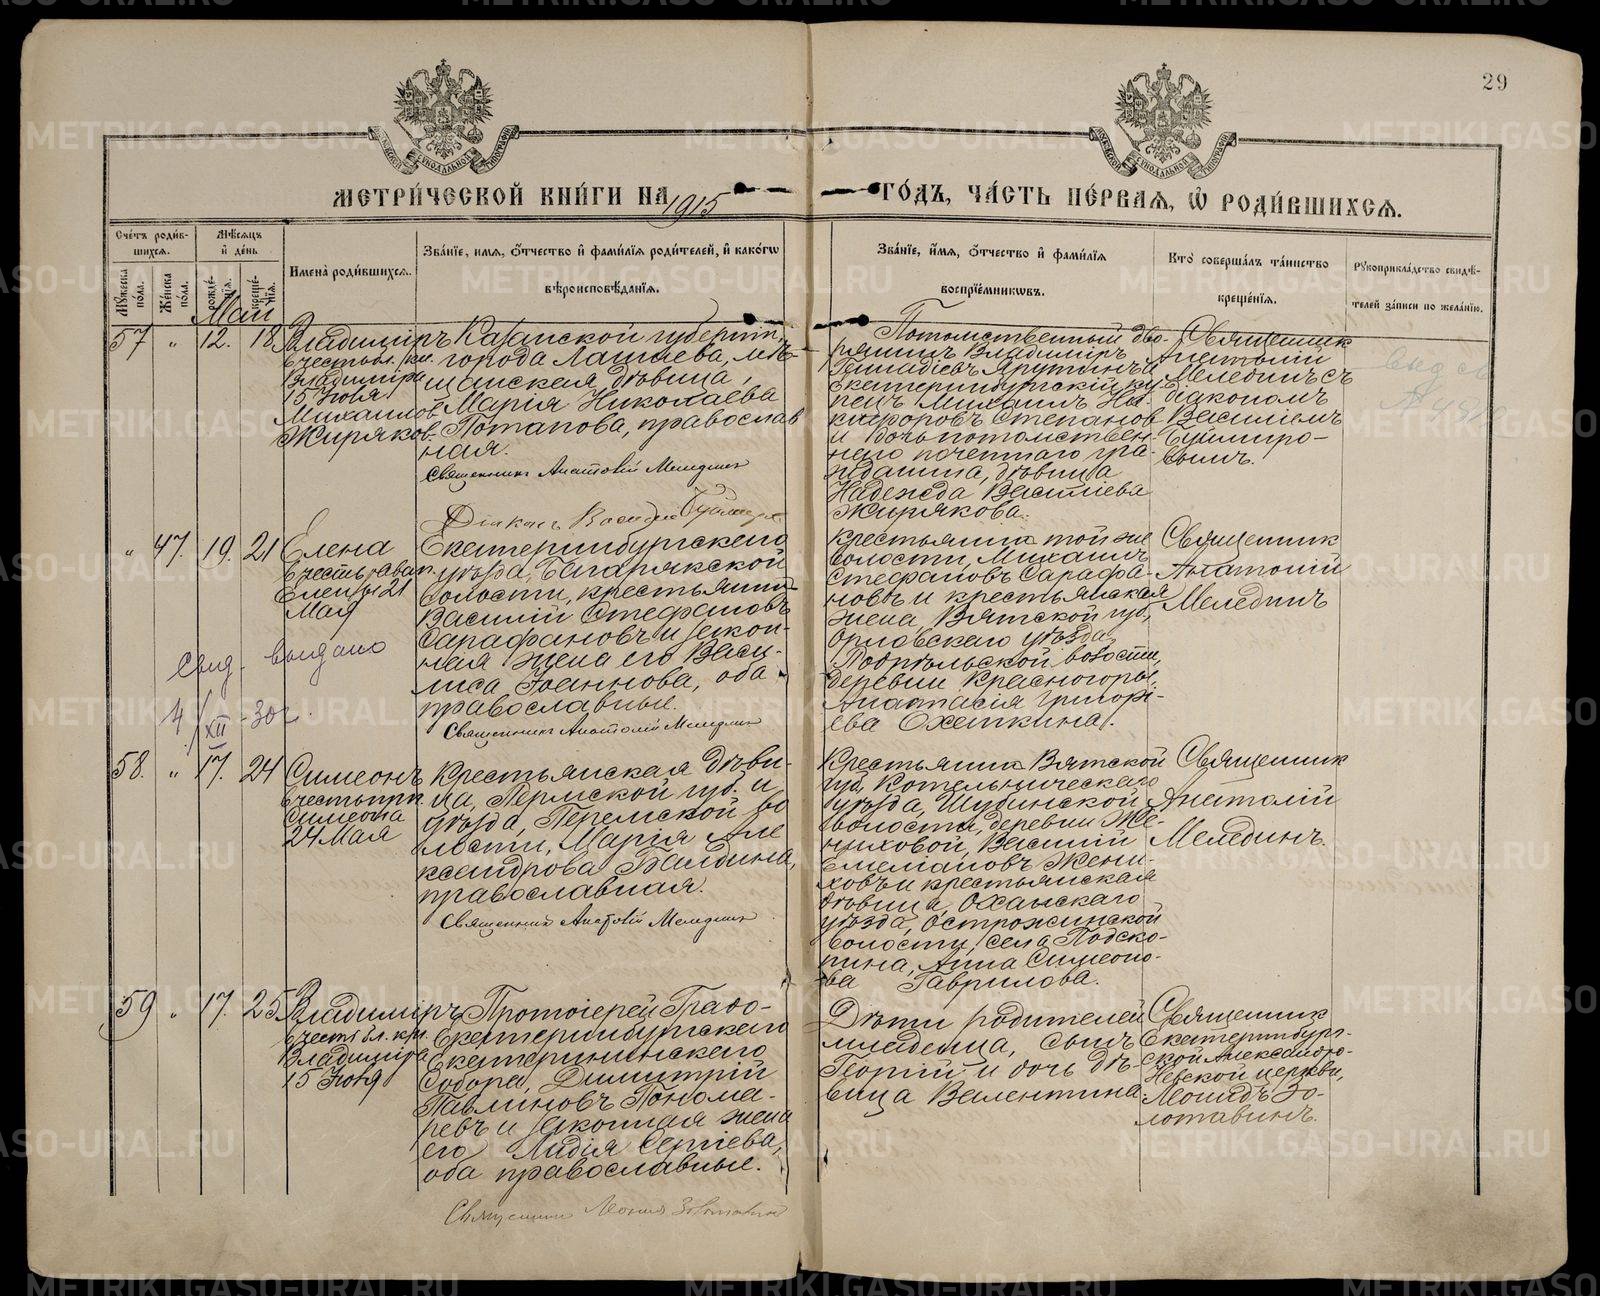 29
МЕТРИ́ЧЕСКОЙ КНИ́ГИ НА 1915 ГО́ДЪ, ЧА́СТЬ ПЕ́РВАЯ, Ѡ РОДИ́ВШИХСЯ.
Сче́тъ роди́вшихся.
Му́жеска по́ла.
Же́нска по́ла.
Мѣ́сяцъ и҆ де́нь
рожде́нїя.
креще́нїя.
Имена̀ роди́вшихся.
Зва́нїе, и́мя, ѻ҆́тчество и҆ фами́лїя роди́телей, и҆ како́гѡ
вѣроисповѣ́данїя.
Зва́нїе, и́мя, ѻ҆́тчество и҆ фами́лїя
воспрїе́мникѡвъ.
Кто̀ соверша́лъ та́инство
креще́нїя.
Рꙋкоприкла́дство свидѣ́-
телей за́писи по жела́нїю.
Май
57 " 12. 18
Владиміръ
въ честь бл. кн.
Владиміра
15 Іюля
Михаилов
Жиряков.
Казанской губерніи,
города Лаишева, мѣ-
щанская дѣвица,
Марія Николаева
Потапова, православ
ная.
Священникъ Анатолій Мелединъ
Діаконъ Василій
Потомственный дво-
рянинъ Владиміръ
Геннадіевъ
Екатеринбургскій ку-
пецъ Михаилъ Ни-
кифоровъ Степанов
и дочь потомствен-
наго почетнаго гра-
жданина, дѣвица
Надежда
Жирякова.
Священник
Анатолій
Мелединъ съ
діакономъ
Василіемъ
" 47. 19. 21
Елена
въ честь равноап.
Елены 21
Мая
Свид. выдано
4/XII -30г.
Екатеринбургскаго
уѣзда, Багарякской
волости, крестьянинъ
Василій Стефановъ
Сарафановъ и закон-
ная жена его Васи-
лиса Іоаннова, оба
православные.
Священникъ Анатолій Мелединъ
Крестьянин той же
волости, Михаилъ
Стефановъ Сарафа-
новъ и крестьянская
жена, Вятской губ,
Орловскаго уѣзда
волости,
деревни Красногоры,
Анастасія Григорі-
ева Охеткина.
Священник
Анатолій
Мелединъ
58. " 17. 24
Симеонъ
въ честь прп.
Симеона
24 Мая
Крестьянская дѣви-
ца, Пермской губ. и
уѣзда, во
лости, Марія Але
ксандрова Балдина,
православная.
Священникъ Анатолій Мелединъ
Крестьянин Вятской
губ, Котельническаго
уѣзда, Шубинской
волости, деревни Же-
ниховой, Василій
Емеліановъ Жени-
ховъ и крестьянская
дѣвица, Оханскаго
уѣзда, Острожинской
волости, села Подско-
пина, Анна Симеоно-
ва Гаврилова.
Священник
Анатолій
Мелединъ.
59 " 17. 25
Владиміръ
въ честь бл. кн.
Владиміра
15 Іюля
Протоіерей Градо-
Екатеринбургскаго
Екатерининскаго
Собора, Димитрій
Павлиновъ Понома-
ревъ и законная жена
его Лидія Сергіева,
оба православные.
Священник Леонид Золотавин
Дѣти родителей
младенца, сынъ
Георгій и дочь дѣ-
вица Валентина.
Священник
Екатеринбург-
ской Александро-
Невской церкви,
Леонидъ Зо-
лотавинъ.